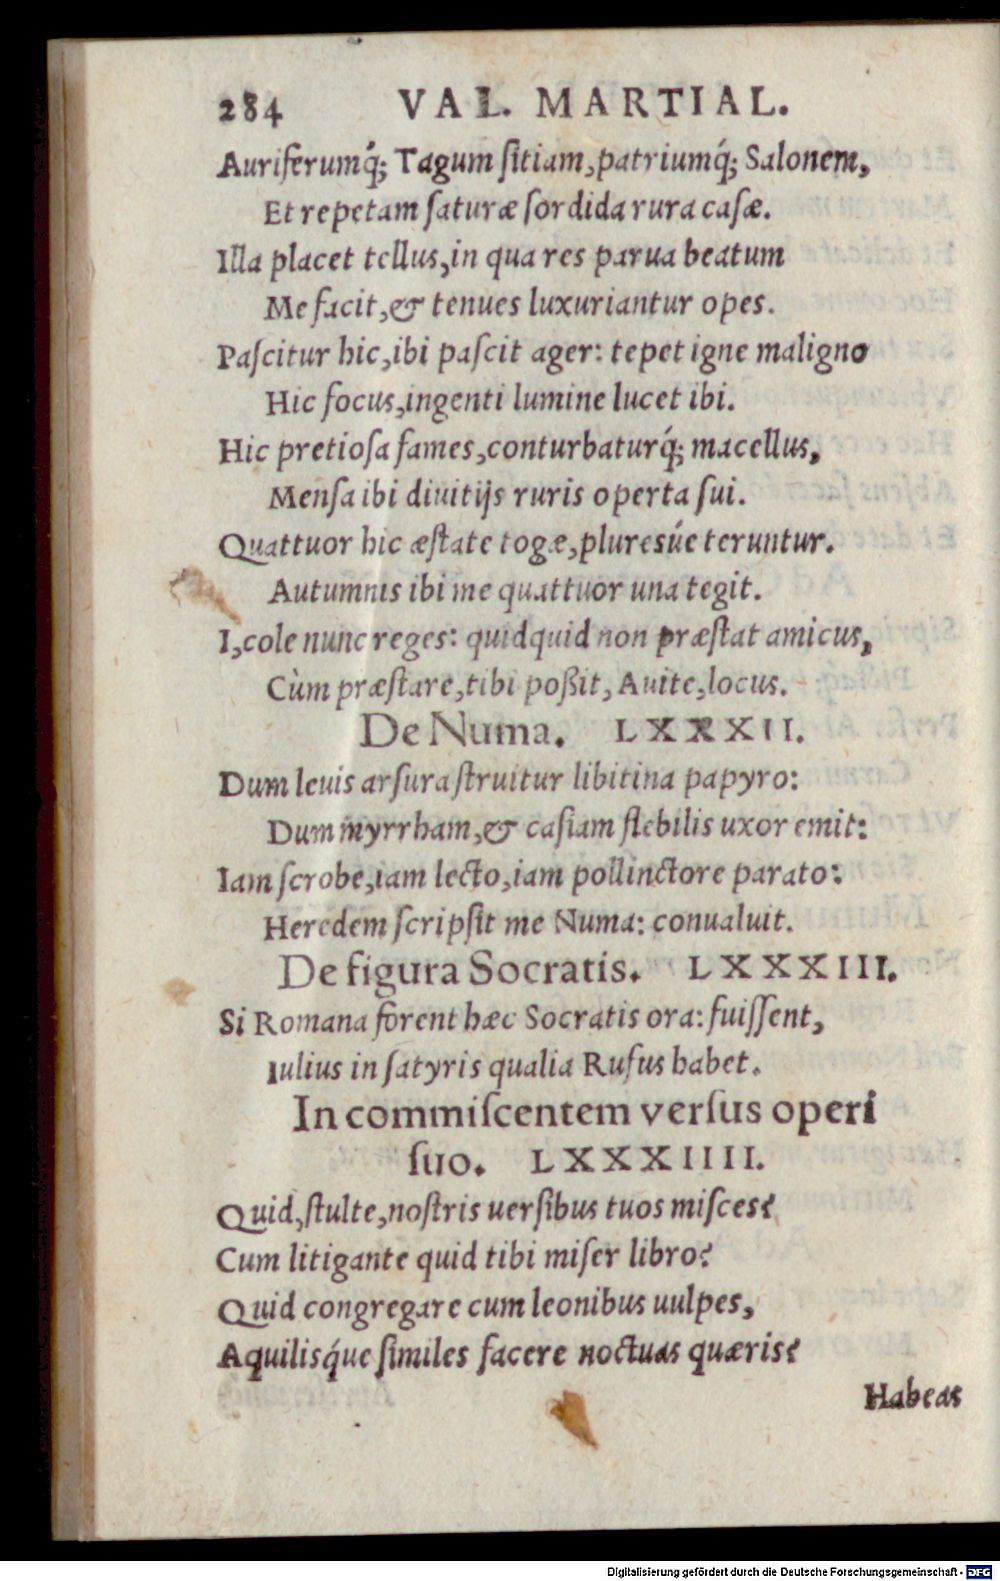 284 VAL. MARTIAL.
Auriferumq́; Tagum ſitiam, patriumq́; Salonem,
Et repetam ſaturæ ſordida rura caſæ.
Illa placet tellus, in qua res parua beatum
Me facit, & tenues luxuriantur opes.
Paſcitur hic, ibi paſcit ager: tepet igne maligno
Hic focus, ingenti lumine lucet ibi.
Hic pretioſa fames, conturbaturq́; macellus,
Menſa ibi diuitijs ruris operta ſui.
Quattuor hic æſtate togæ, pluresúe teruntur.
Autumnis ibi me quattuor una tegit.
I, cole nunc reges: quidquid non præſtat amicus,
Cùm præſtare, tibi poßit, Auite, locus.
De Numa. LXXXII.
Dum leuis arſura ſtruitur libitina papyro:
Dum myrrham, & caſiam flebilis uxor emit:
Iam ſcrobe, iam lecto, iam pollinctore parato:
Heredem ſcripſit me Numa: conualuit.
De figura Socratis. LXXXIII.
Si Romana forent hæc Socratis ora: fuiſſent,
Iulius in ſatyris qualia Rufus habet.
In commiſcentem verſus operi
ſuo. LXXXIIII.
Quid, ſtulte, noſtris uerſibus tuos miſces?
Cum litigante quid tibi miſer libro?
Quid congregare cum leonibus uulpes,
Aquilisq́ue ſimiles facere noctuas quæris?
Habeas
Digitalisierung gefördert durch die Deutsche Forschungsgemeinschaft - DFG